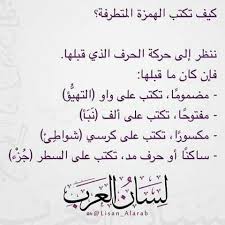 كيف تكتب الهمزة المتطرفة؟
ننظر إلى حركة الحرف الذي قبلها.
فإن كان ما قبلها:
- مضمومًا، تكتب على واو (التهيُّؤ)
- مفتوحًا، تكتب على ألف (نَبَأ)
- مكسورًا، تكتب على كرسي (شواطِئ)
- ساكنًا أو حرف مد، تكتب على السطر (جُزْء)
لسان العرب
@Lisan_Alarab